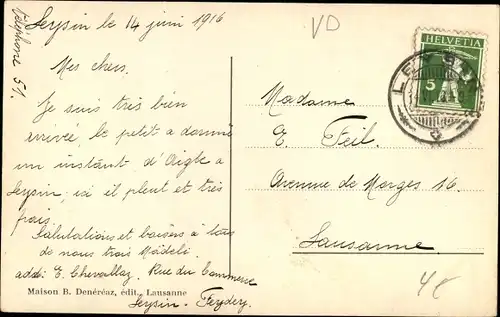 Téléphone 51.
Leysin le 14 juin 1916
VD
Mes chers.
Je suis très bien
arrivée, le petit a dormi
un instant d'Aigle à
Leysin, ici il pleut et très
frais.
Salutations et baisers à tous
de nous trois Mädeli
add: E. Chevallaz. Rue du Commerce
Leysin-Feydey.
Maison B. Denéréaz, édit., Lausanne
HELVETIA
5
LEYSIN
Madame
E. Feil
Avenue de Morges 16.
Lausanne.